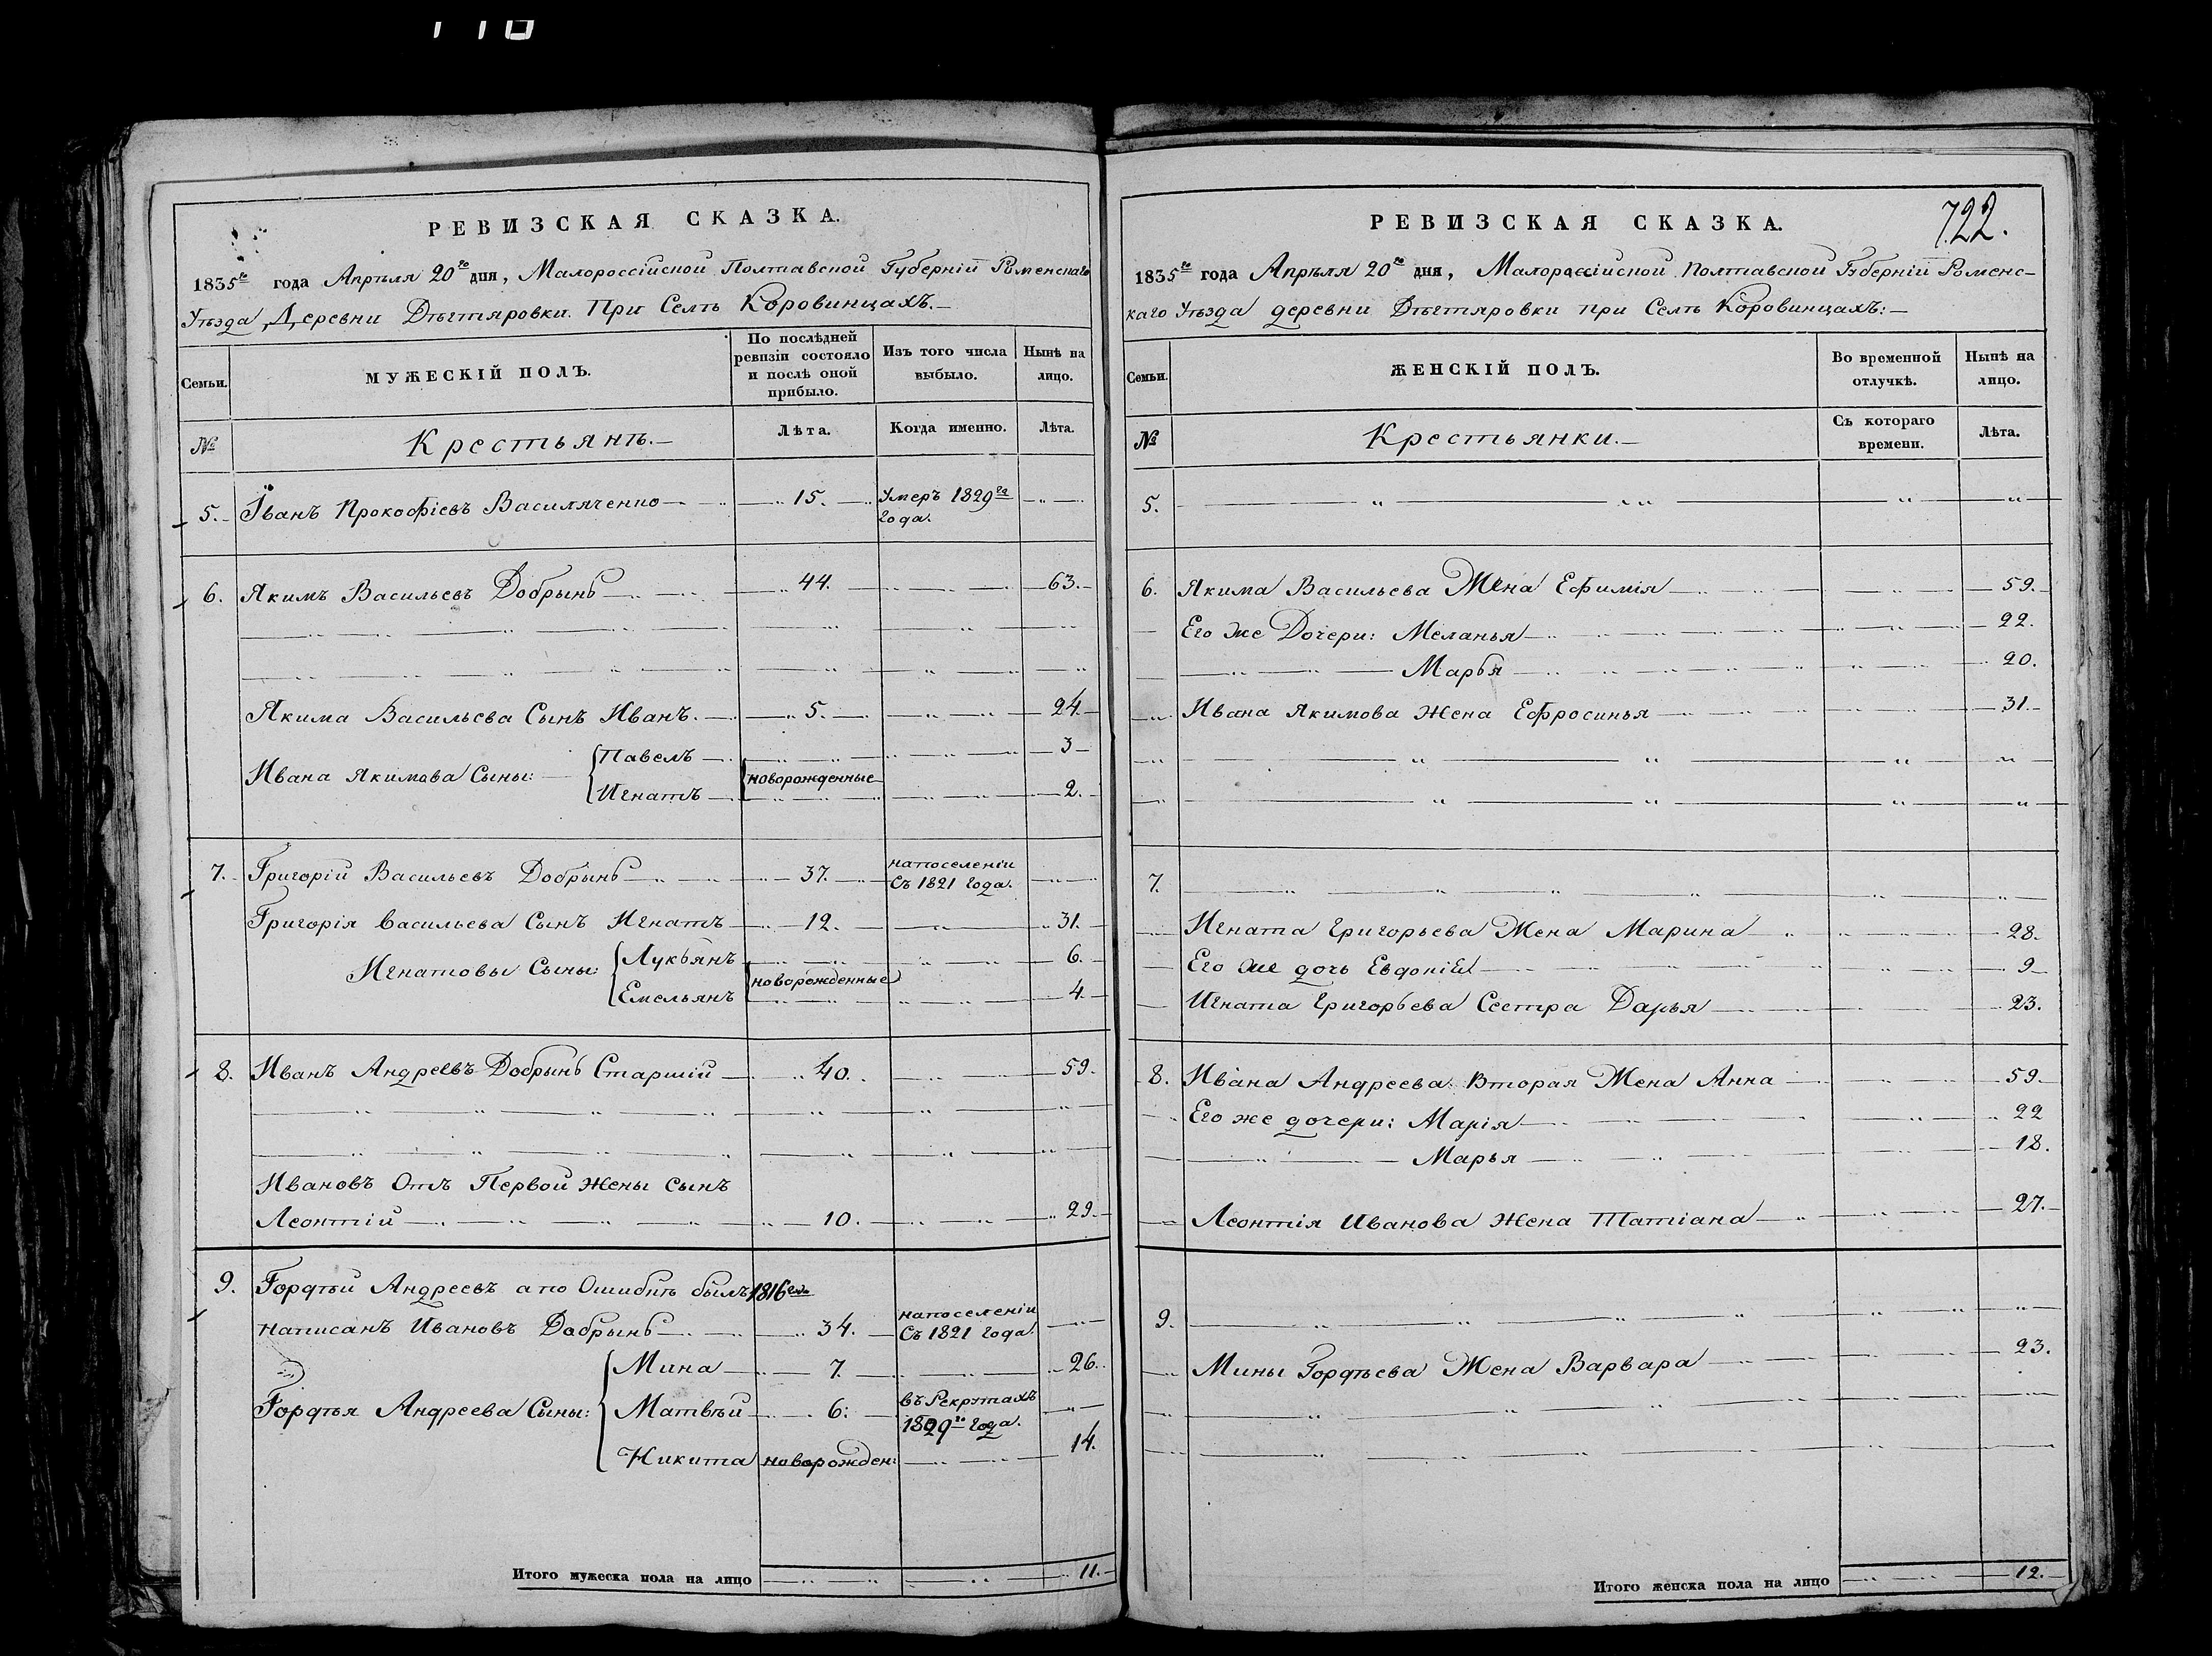 РЕВИЗСКАЯ СКАЗКА.
1835го года Апрѣля 20го дня, Малороссійской Полтавской Губерніи Роменскаго
Уѣзда, Деревни Дѣгтяровки При Селѣ Коровинцахъ.
Семьи.
МУЖЕСКІЙ ПОЛЪ.
По послѣдней ревизіи состояло и послѣ оной прибыло.
Изъ того числа выбыло.
Нынѣ на лицо.
№
Крестьянъ.
Лѣта.
Когда именно.
Лѣта.
5. Іванъ Прокофіевъ Василяченко 15. Умеръ 1829го
года.
6. Якимъ Васильевъ Добрынь 44. 63.
Якима Васильева Сынъ Иванъ. 5. 24.
Ивана Якимова Сыны: Павелъ 3
новорожденные
Игнатъ 2.
7. Григорій Васильевъ Добрынь 37. на поселеніи
Съ 1821 года.
Григорія Васильева Сынъ Игнатъ 12. 31.
Игнатовы Сыны: Лукьянъ 6.
новорожденные
Емельянъ 4.
8. Иванъ Андреевъ Добрынь Старшій 40. 59.
Ивановъ Отъ Первой Жены Сынъ
Леонтій 10. 29.
9. Гордѣй Андреевъ а по Ошибкѣ былъ 1816
написанъ Ивановъ Добрынь 34. на поселеніи
Съ 1821 года.
Мина 7. 26.
Гордѣя Андреева Сыны: Матвѣй 6. въ Рекрутахъ
1829го года.
Никита новорожден: 14.
Итого мужеска пола на лицо 11.
722.
РЕВИЗСКАЯ СКАЗКА.
1835го года Апрѣля 20го дня, Малороссійской Полтавской Губерніи Роменс-
каго Уѣзда деревни Дѣгтяровки при Селѣ Коровинцахъ:
Семьи.
ЖЕНСКІЙ ПОЛЪ.
Во временной отлучкѣ.
Нынѣ на лицо.
№
Крестьянки.
Съ котораго времени.
Лѣта.
5.
6. Якима Васильева Жена Ефимія 59.
Его же Дочери: Меланья 22.
Марья 20.
Ивана Якимова Жена Ефросинья 31.
7.
Игната Григорьева Жена Марина 28.
Его же дочь Евдокія 9
Игната Григорьева Сестра Дарья 23.
8. Ивана Андреева Вторая Жена Анна 59.
Его же дочери: Марія 22
Марья 18.
Леонтія Иванова Жена Татіана 27.
9.
Мины Гордѣева Жена Варвара 23.
Итого женска пола на лицо 12.